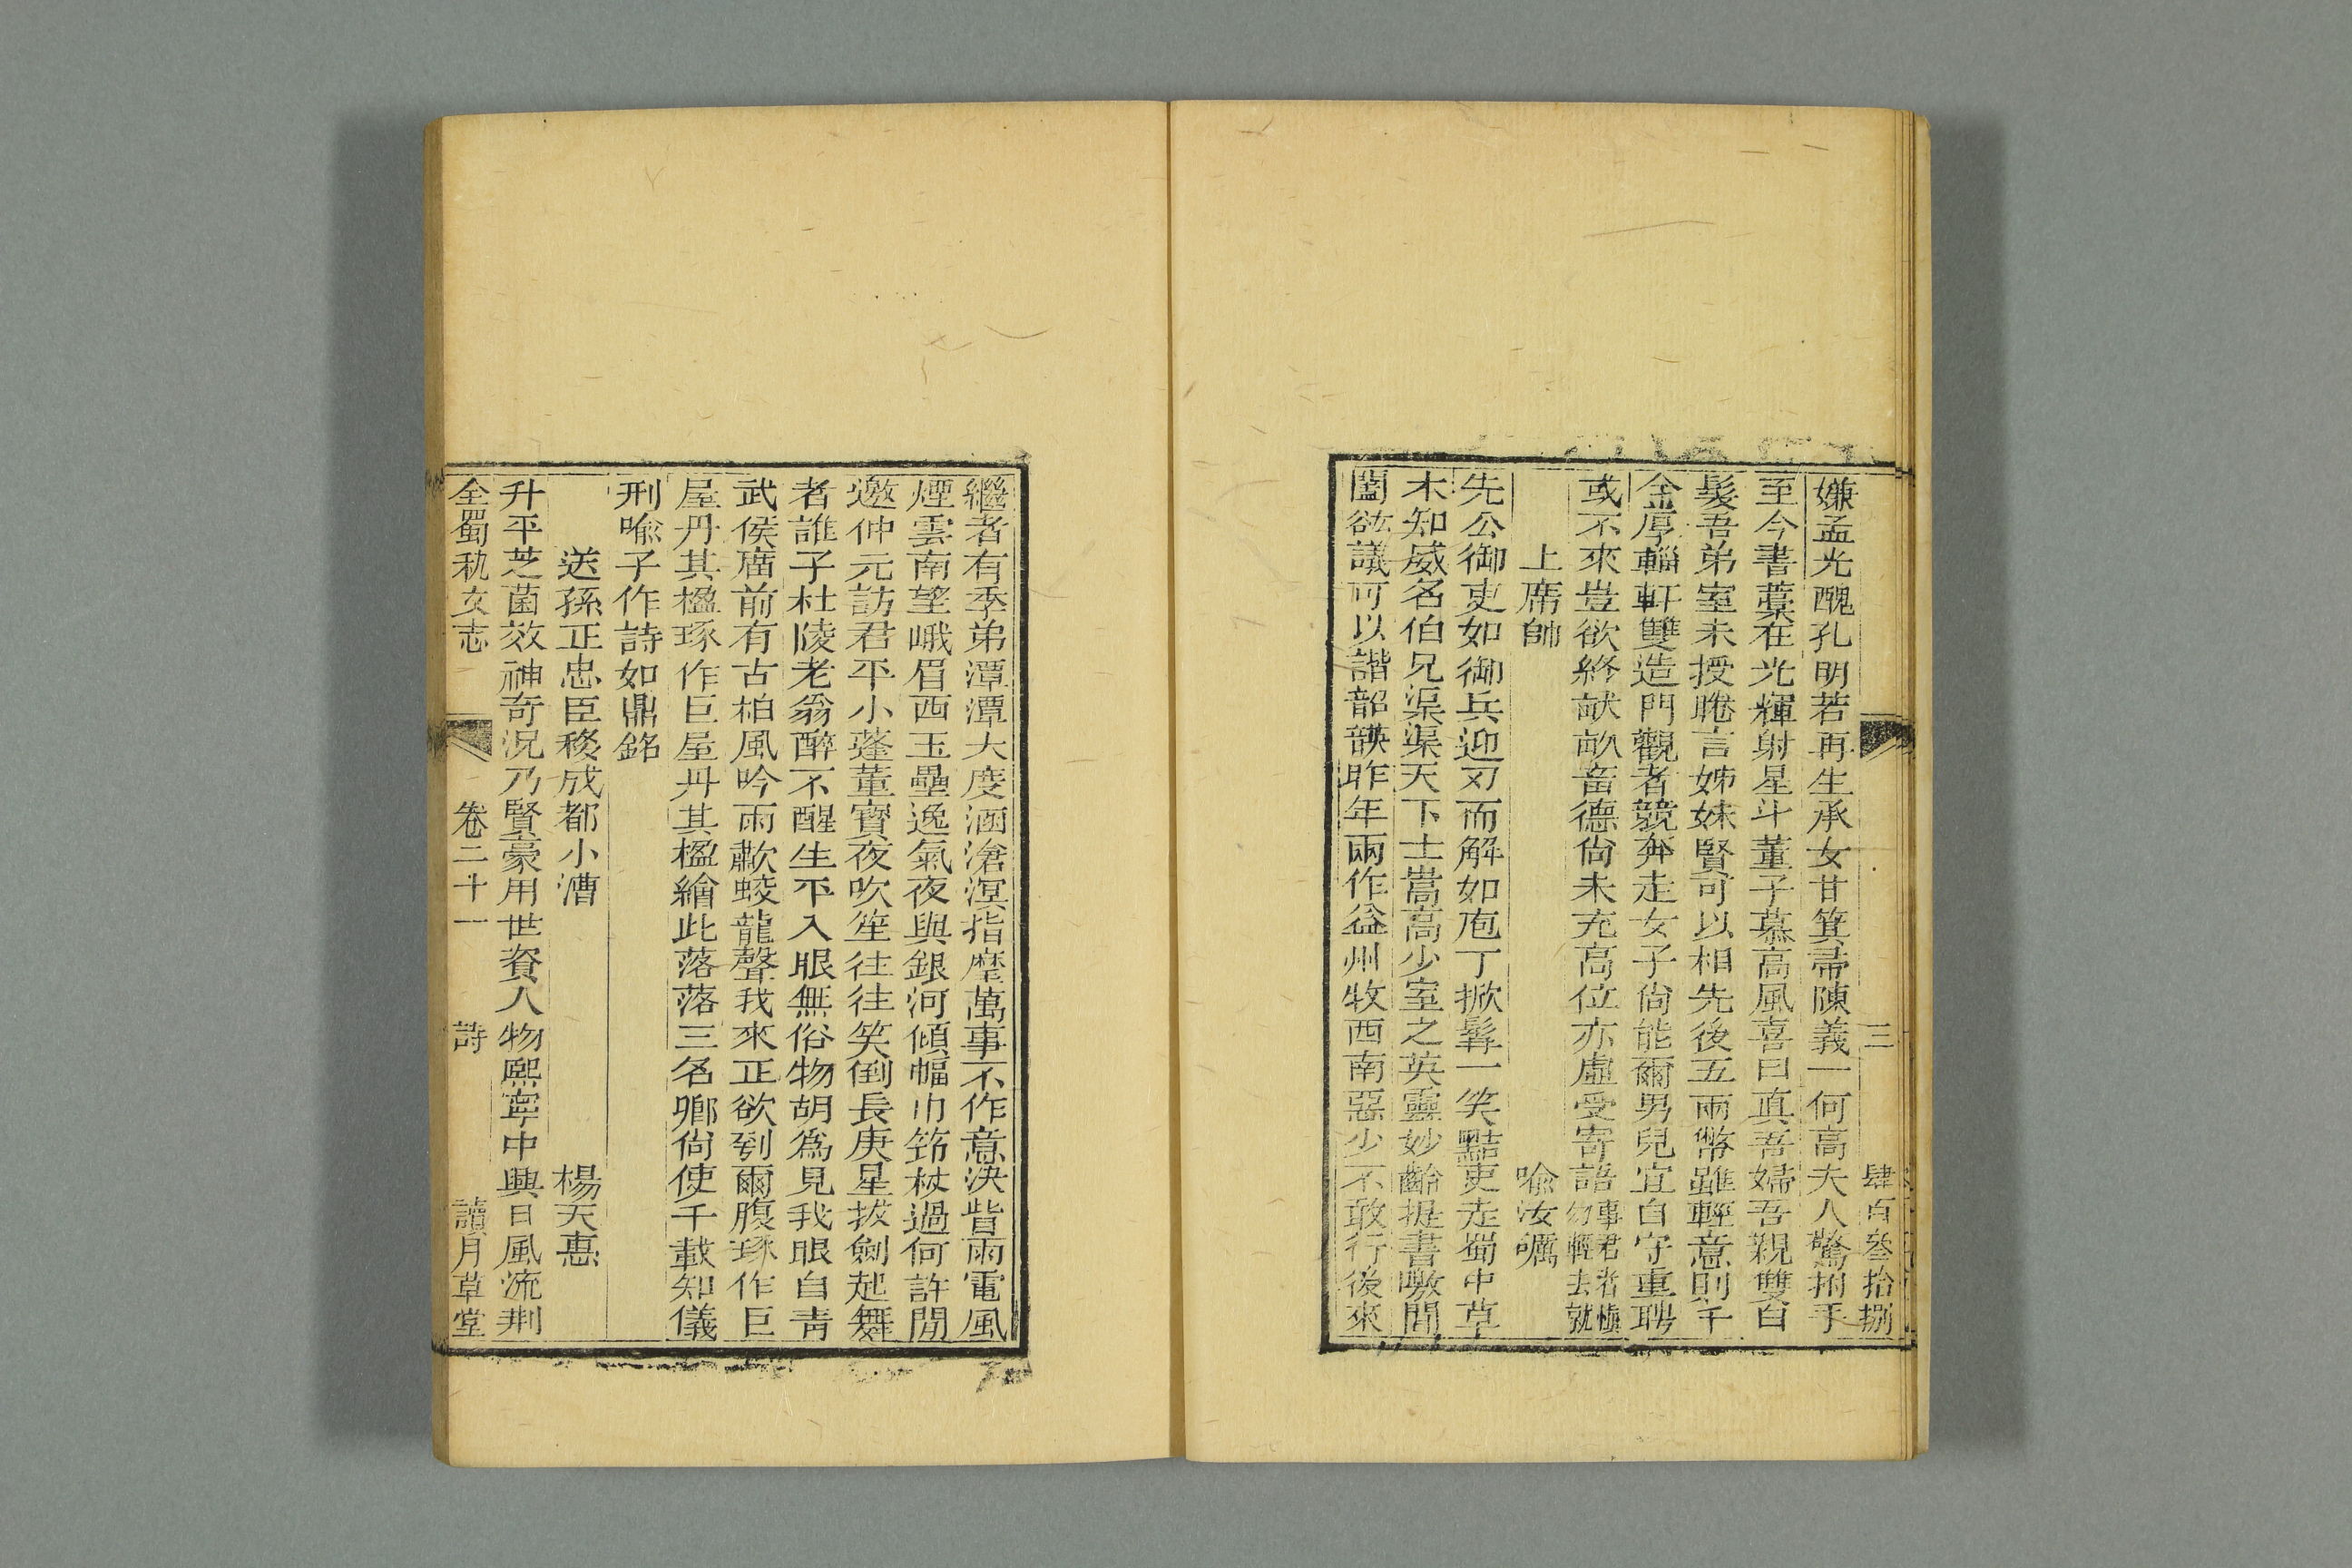 三　肆百叁拾捌
嫌孟光醜孔明若再生承女甘箕帚陳義一何高夫人驚拊手
至今書藁在光輝射星斗董子慕高風喜曰真吾婦吾親雙白
髮吾弟室未授睠言姊妹賢可以相先後五兩幣雖輕意則千
金厚輜軒雙造門觀者競奔走女子尙能爾男兒宜自守重聘
或不來豈欲終畎畝畜德尙未充高位亦虛受寄語事君者愼勿輕去就
上席帥　喩汝礪
先公御吏如御兵迎刃而解如庖丁掀髯一笑黠吏走蜀中草
木知威名伯兄渠渠天下士嵩高少室之英靈妙齡挺書噭閶
闔欲議可以諧韶韺昨年兩作益州牧西南惡少不敢行後來
繼者有季弟潭潭大度涵滄溟指麾萬事不作意決眥雨電風
煙雲南望峨眉西玉壘逸氣夜與銀河傾幅巾筇杖過何許閒
邀仲元訪君平小蓬董寶夜吹笙往往笑倒長庚星拔劍起舞
者誰子杜陵老翁醉不醒生平入眼無俗物胡爲見我眼自靑
武侯庿前有古柏風吟雨歗蛟龍聲我來正欲到爾腹琢作巨
屋丹其楹琢作巨屋丹其楹繪此落落三名卿尙使千載知儀
刑喩子作詩如鼎銘
送孫正忠臣移成都小漕　楊天惠
升平芝菌效神奇況乃賢豪用世資人物熙寧中興日風流荆
全蜀秇文志　卷二十一　詩　讀月草堂